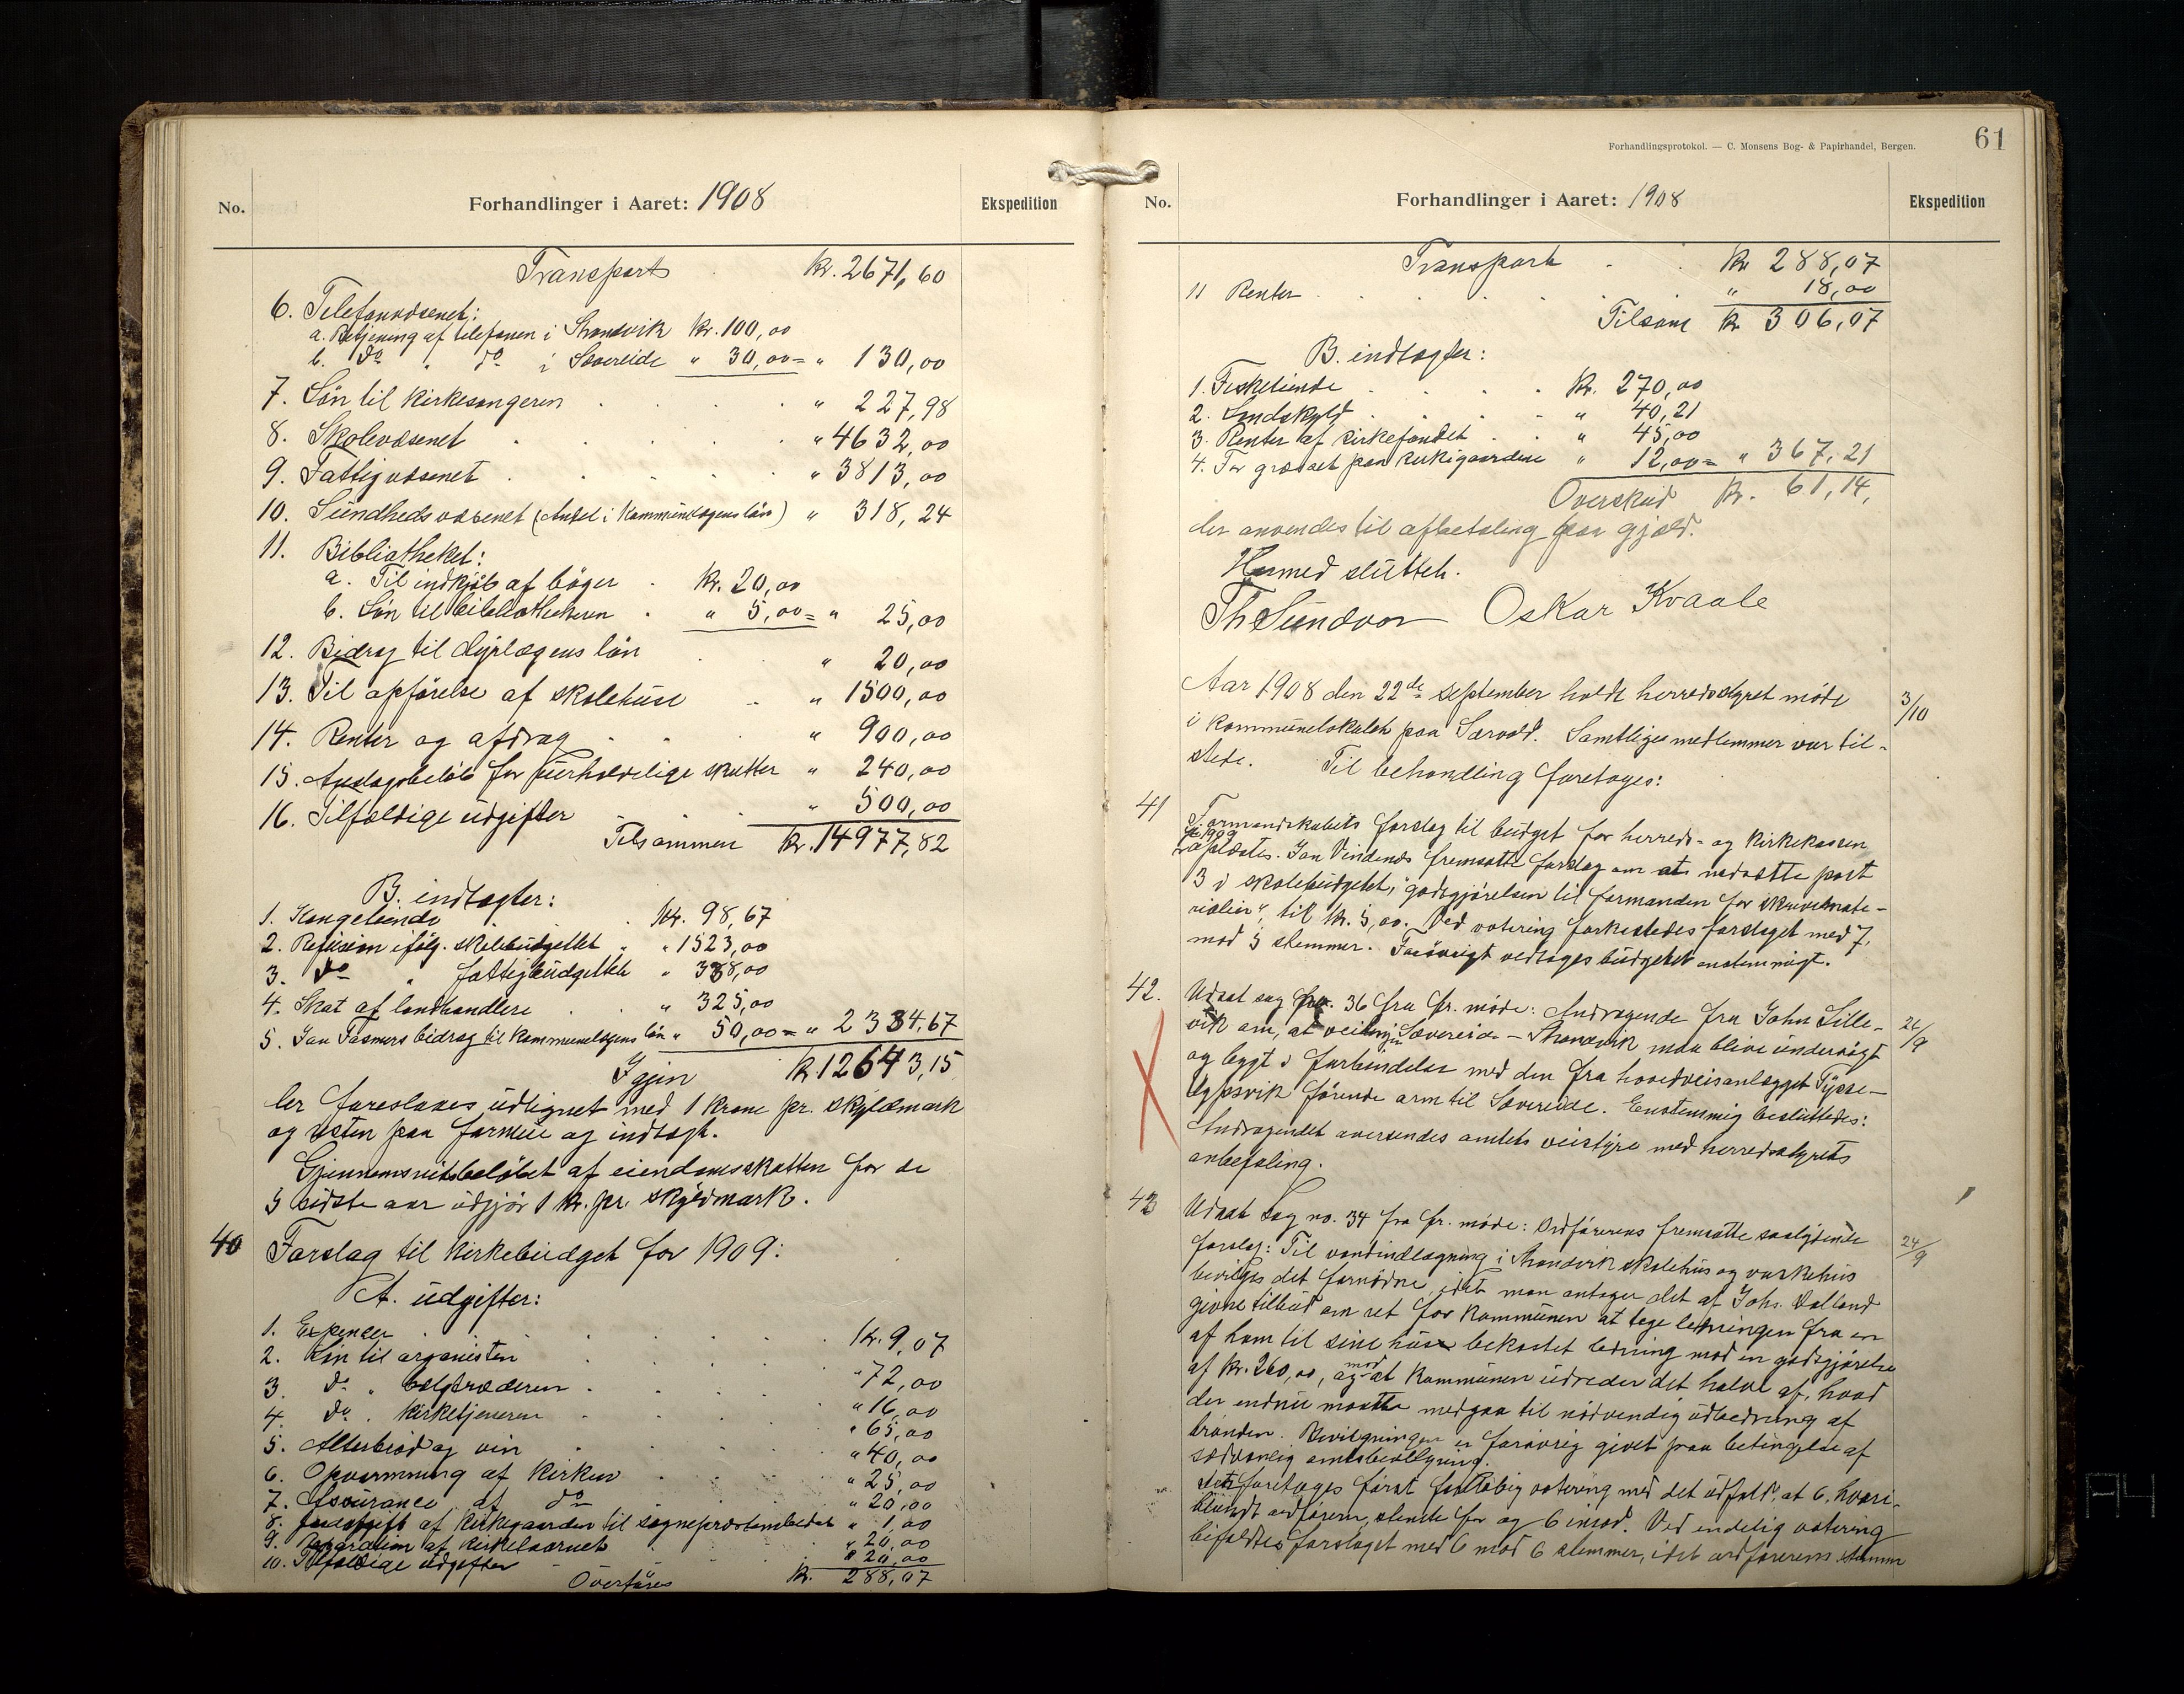 No.
Forhandlinger i Aaret: 1908
Ekspedition
Transport . kr. 2671,60
6. Telefonvæsenet:
a. Betjening af telefonen i Strandvik kr. 100,00
b. do " do i Sævereide " 30,00 = " 130,00
7. Løn til kirkesangeren . . . " 227,98
8. Skolevæsenet . . . . " 4632,00
9. Fattigvæsenet . . . . " 3813,00
10. Sundhedsvæsenet (Andel i kommunelægens løn) " 318,24
11. Bibliotheket:
a. Til indkjøb af bøger . kr. 20,00
b. Løn til bibliothekeren . " 5,00 = " 25,00
12. Bidrag til dyrlægens løn . . " 20,00
13. Til opførelse af skolehuse .. " 1500,00
14. Renter og afdrag . . . " 900,00
15. Anslagsbeløb for uerholdelige skatter " 240,00
16. Tilfældige udgifter . . " 500,00
Tilsammen kr. 14977,82
B. indtægter:
1. Kongetiende . . kr. 98,67
2. Refusion ifølg. skolebudgettet " " 1523,00
3. do " fattigbudgettet " 388,00
4. Skat af landhandlere . . " 325,00
5. Jan Fasmers bidrag til kommunelægens løn " 50,00 = " 2384,67
Igjen kr. 12643,15
der foreslaaes udlignet med 1 krone pr. skyldmark
og resten paa formue og indtægt.
Gjennemsnitsbeløbet af eiendomsskatten for de
5 sidste aar udgjør 1 kr. pr. skyldmark.
40 Forslag til kirkebudget for 1909:
A. udgifter:
1. Expenser . . . . . . kr. 9,07
2. Løn til organisten . . . . " 72,00
3. do " bælgtræderen . . . . " 16,00
4. do . kirketjeneren . . . " 65,00
5. Alterbrød og vin . . . " 40,00
6. Opvarmning af kirken . . " 25,00
7. Assurance af do " 20,00
8. af kirkegaarden til sogneprestembedet " 1,00
9. Reparation af kirketaarnet " 20,00
10. Tilfældige udgifter " 20,00
Overføres kr. 288,07
Forhandlingsprotokol. — C. Monsens Bog- & Papirhandel, Bergen.
61
No.
Forhandlinger i Aaret: 1908
Ekspedition
Transport . . kr 288,07
11 Renter . . . . . . " 18,00
Tilsam kr 306,07
B. indtægter:
1. Fisketiende . . . . kr. 270,00
2. Landskyld . . . . " 40,21
3. Renter af kirkefondet . . " 45,00
4. For græsset paa kirkegaardene " 12,00 = " 367,21
Overskud kr. 61,14,
der anvendes til afbetaling paa gjæld.
Hermed sluttet.
Th Sundvor Oskar Kvaale
Aar 1908 den 22de september holdt herredsstyret møde
3/10
i kommunelokalet paa Sævold. Samtlige medlemmer var til-
stede. Til behandling foretoges:
41 Formandskabets forslag til budget for herreds- og kirkekassen
for 1909
oplæstes. Jan Vindenes fremsatte forslag om at nedsætte post
3 i skolebudgettet, "godtgjørelsen til formanden for skrivemate-
rialier", til kr. 5,00. Ved votering forkastedes forslaget med 7
mod 5 stemmer. Forøvrigt vedtoges budgettet enstemmigt.
42. Udsat sag no. 36 fra fr. møde: Andragende fra John Lille-
26/9
vik om, at veilinjen Sævereide - Strandvik maa blive undersøgt
og bygt i forbindelse med den fra hovedveisanlægget Tysse-
førende arm til Sævereide. Enstemmig besluttedes:
Andragendet oversendes amtets veistyre med herredsstyrets
anbefaling.
43 Udsat Sag no. 34 fra fr. møde: Ordføreren fremsatte saalydende
24/9
forslag: Til vandindlægning i Strandvik skolehus og vaskehus
bevilges det fornødne, idet man antager det af Johs. Dalland
givne tilbud om ret for kommunen at tage ledningen fra en
af ham til sine huse bekostet ledning mod en godtgjørelse
af kr. 260,00, og mod at kommunen udreder det halve af, hvad
der endnu maatte medgaa til nødvendig udbedring af
brønden. Bevilgningen er forøvrig givet paa betingelse af
sædvanlig amtsbevilgning.
Der foretoges først foreløbig votering med det udfald, at 6, hvori-
blandt ordføreren, stemte for og 6 imod. Ved endelig votering
bifaldtes forslaget med 6 mod 6 stemmer, idet ordførerens stemme